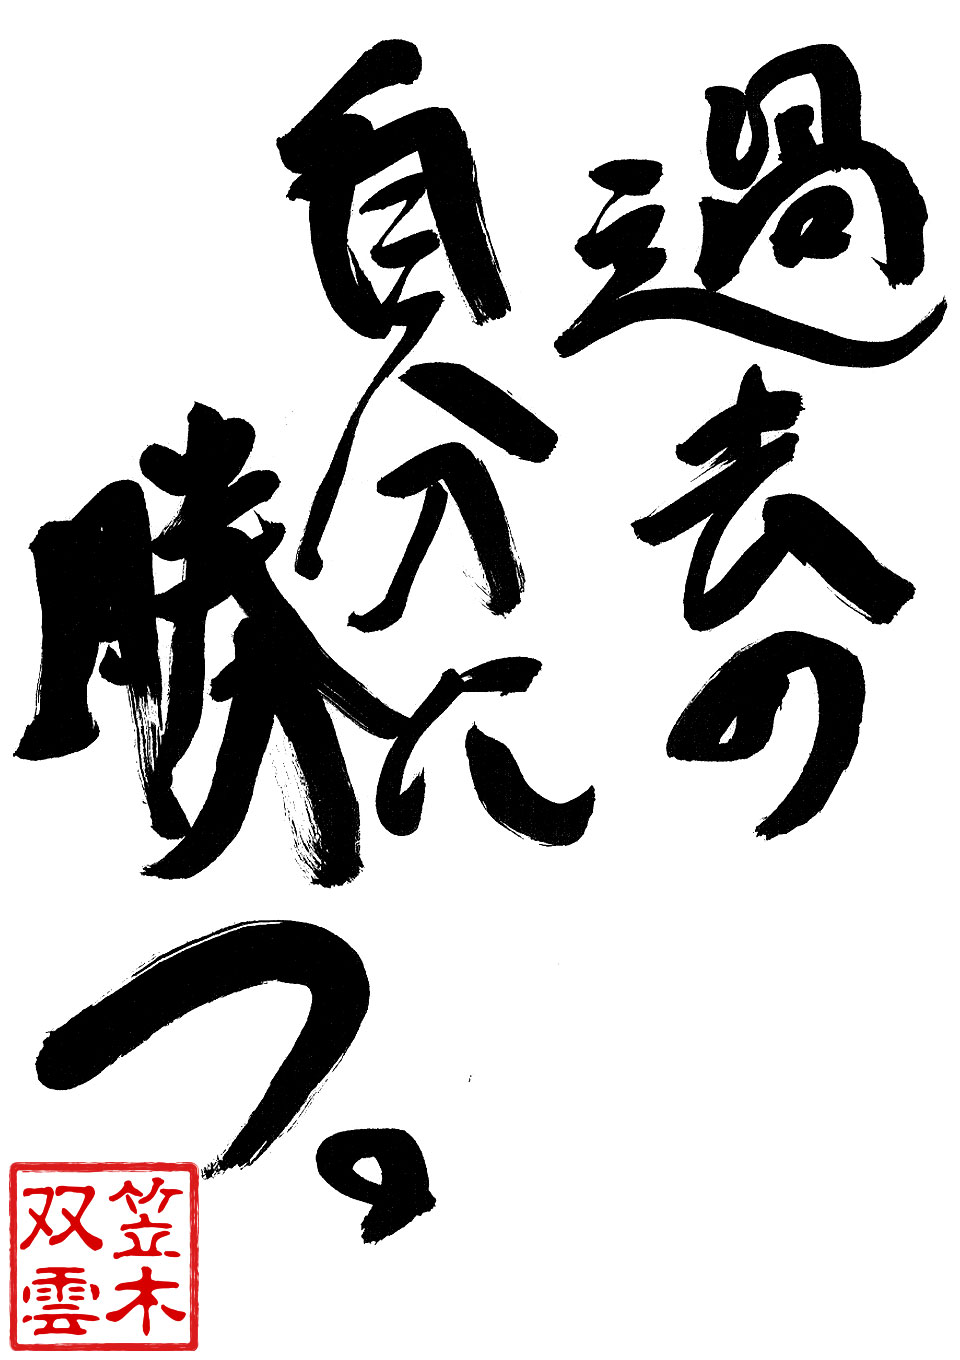 過去の
自分に
勝つ。
笠木
双雲